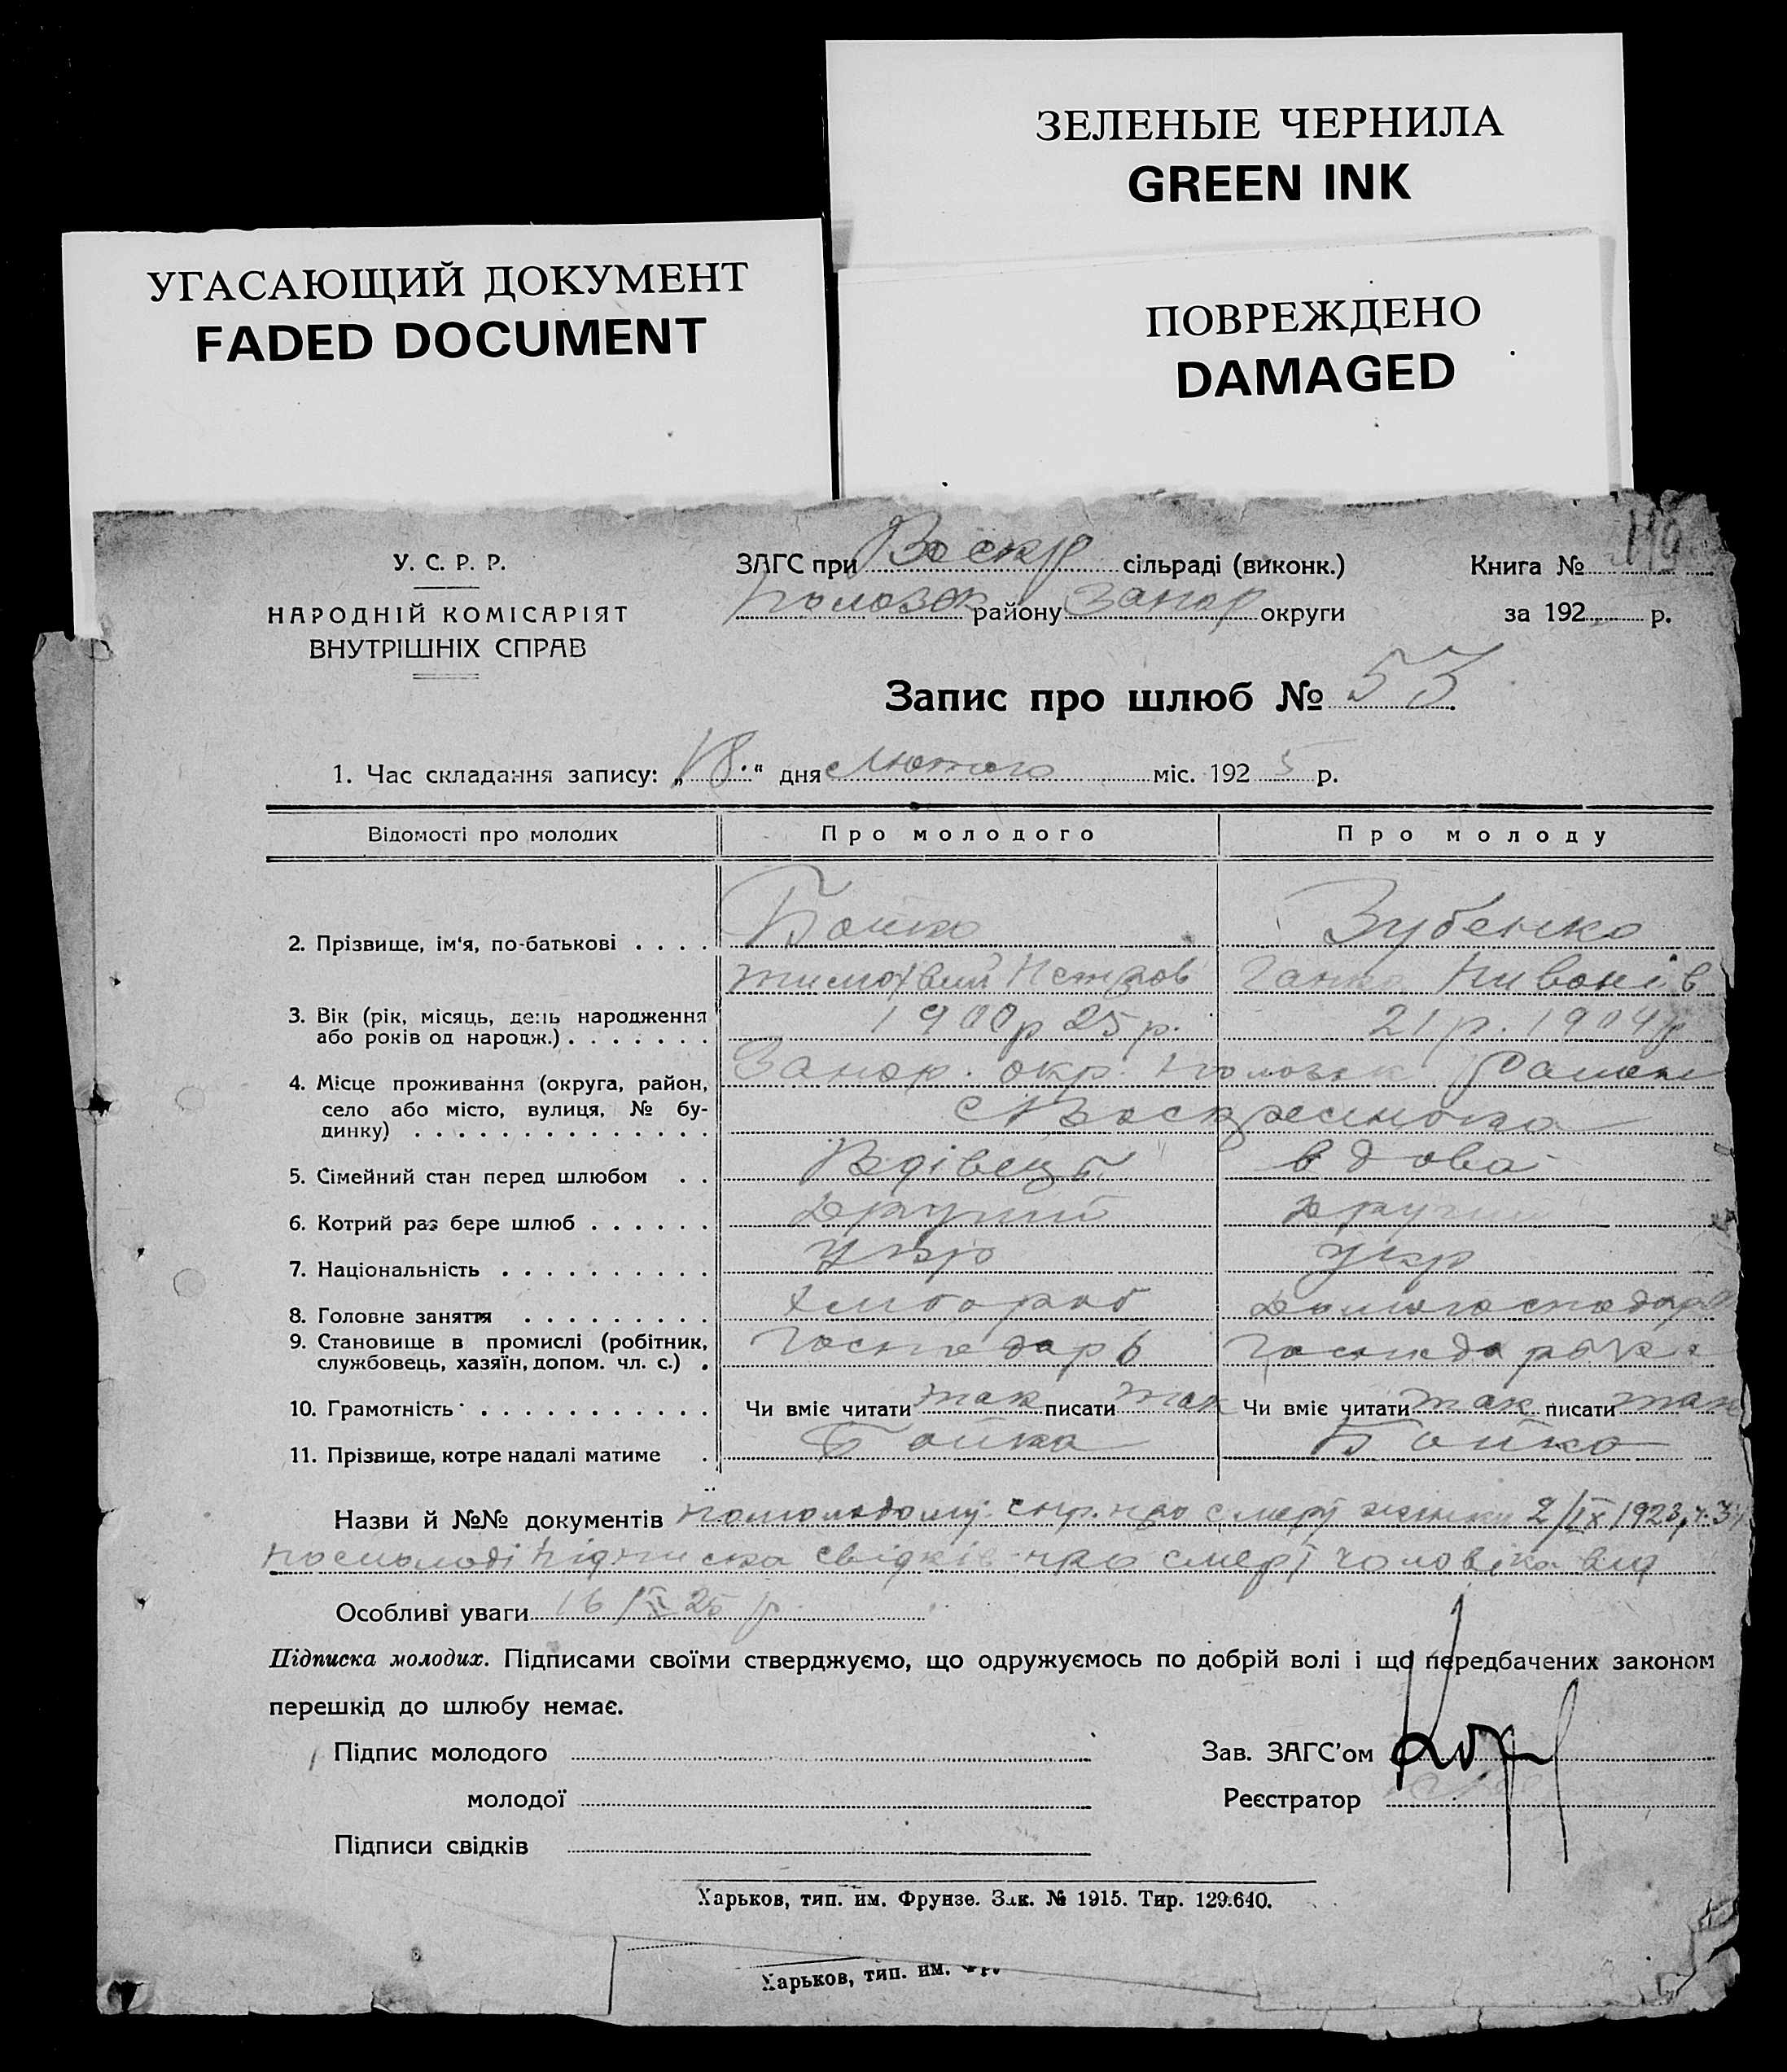 ЗЕЛЕНЫЕ ЧЕРНИЛА
GREEN INK
УГАСАЮЩИЙ ДОКУМЕНТ
FADED DOCUMENT
ПОВРЕЖДЕНО
DAMAGED
У. С. Р. Р.
НАРОДНІЙ КОМІСАРІЯТ
ВНУТРІШНІХ СПРАВ
ЗАГС при Воскр сільраді (виконк.)
Пологзк району Запор округи
Книга №
за 192 р.
Запис про шлюб № 53
1. Час складання запису: „18." дня Лютого міс. 1925 р.
Відомості про молодих Про молодого Про молоду
2. Прізвище, ім'я, по-батькові . . . . Бойко Зубенко
Тимофвий Петров Ганна Пивонів
3. Вік (рік, місяць, день народження
або років од народж.) . . . . . . . 1900р 25р. 21р. 1904р
4. Місце проживання (округа, район, Запор. окр.
село або місто, вулиця, № бу-
динку) . . . . . . . . . . . . . . .
5. Сімейний стан перед шлюбом . . Вдівець вдова
6. Котрий раз бере шлюб . . . . . . Другий другий
7. Національність . . . . . . . . . . Укр Укр
8. Головне заняття . . . . . . . . . Хлібороб
9. Становище в промислі (робітник,
службовець, хазяїн, допом. чл. с.) . Господарь
10. Грамотність . . . . . . . . . . . . Чи вміє читати так писати так Чи вміє читати так писати так
11. Прізвище, котре надалі матиме . Бойко Бойко
Назви й №№ документів помолодому спр. про смерт жінки 2/IX 1923
помолоді підписка свідків про смерт чоловіка від
Особливі уваги 16/II 25 р.
Підписка молодих. Підписами своїми стверджуємо, що одружуємось по добрій волі і що передбачених законом
перешкід до шлюбу немає.
Підпис молодого
Зав. ЗАГС'ом
молодої
Реєстратор
Підписи свідків
Харьков, тип. им. Фрунзе. Зак. № 1915. Тир. 129.640.
Харьков, тип. им.